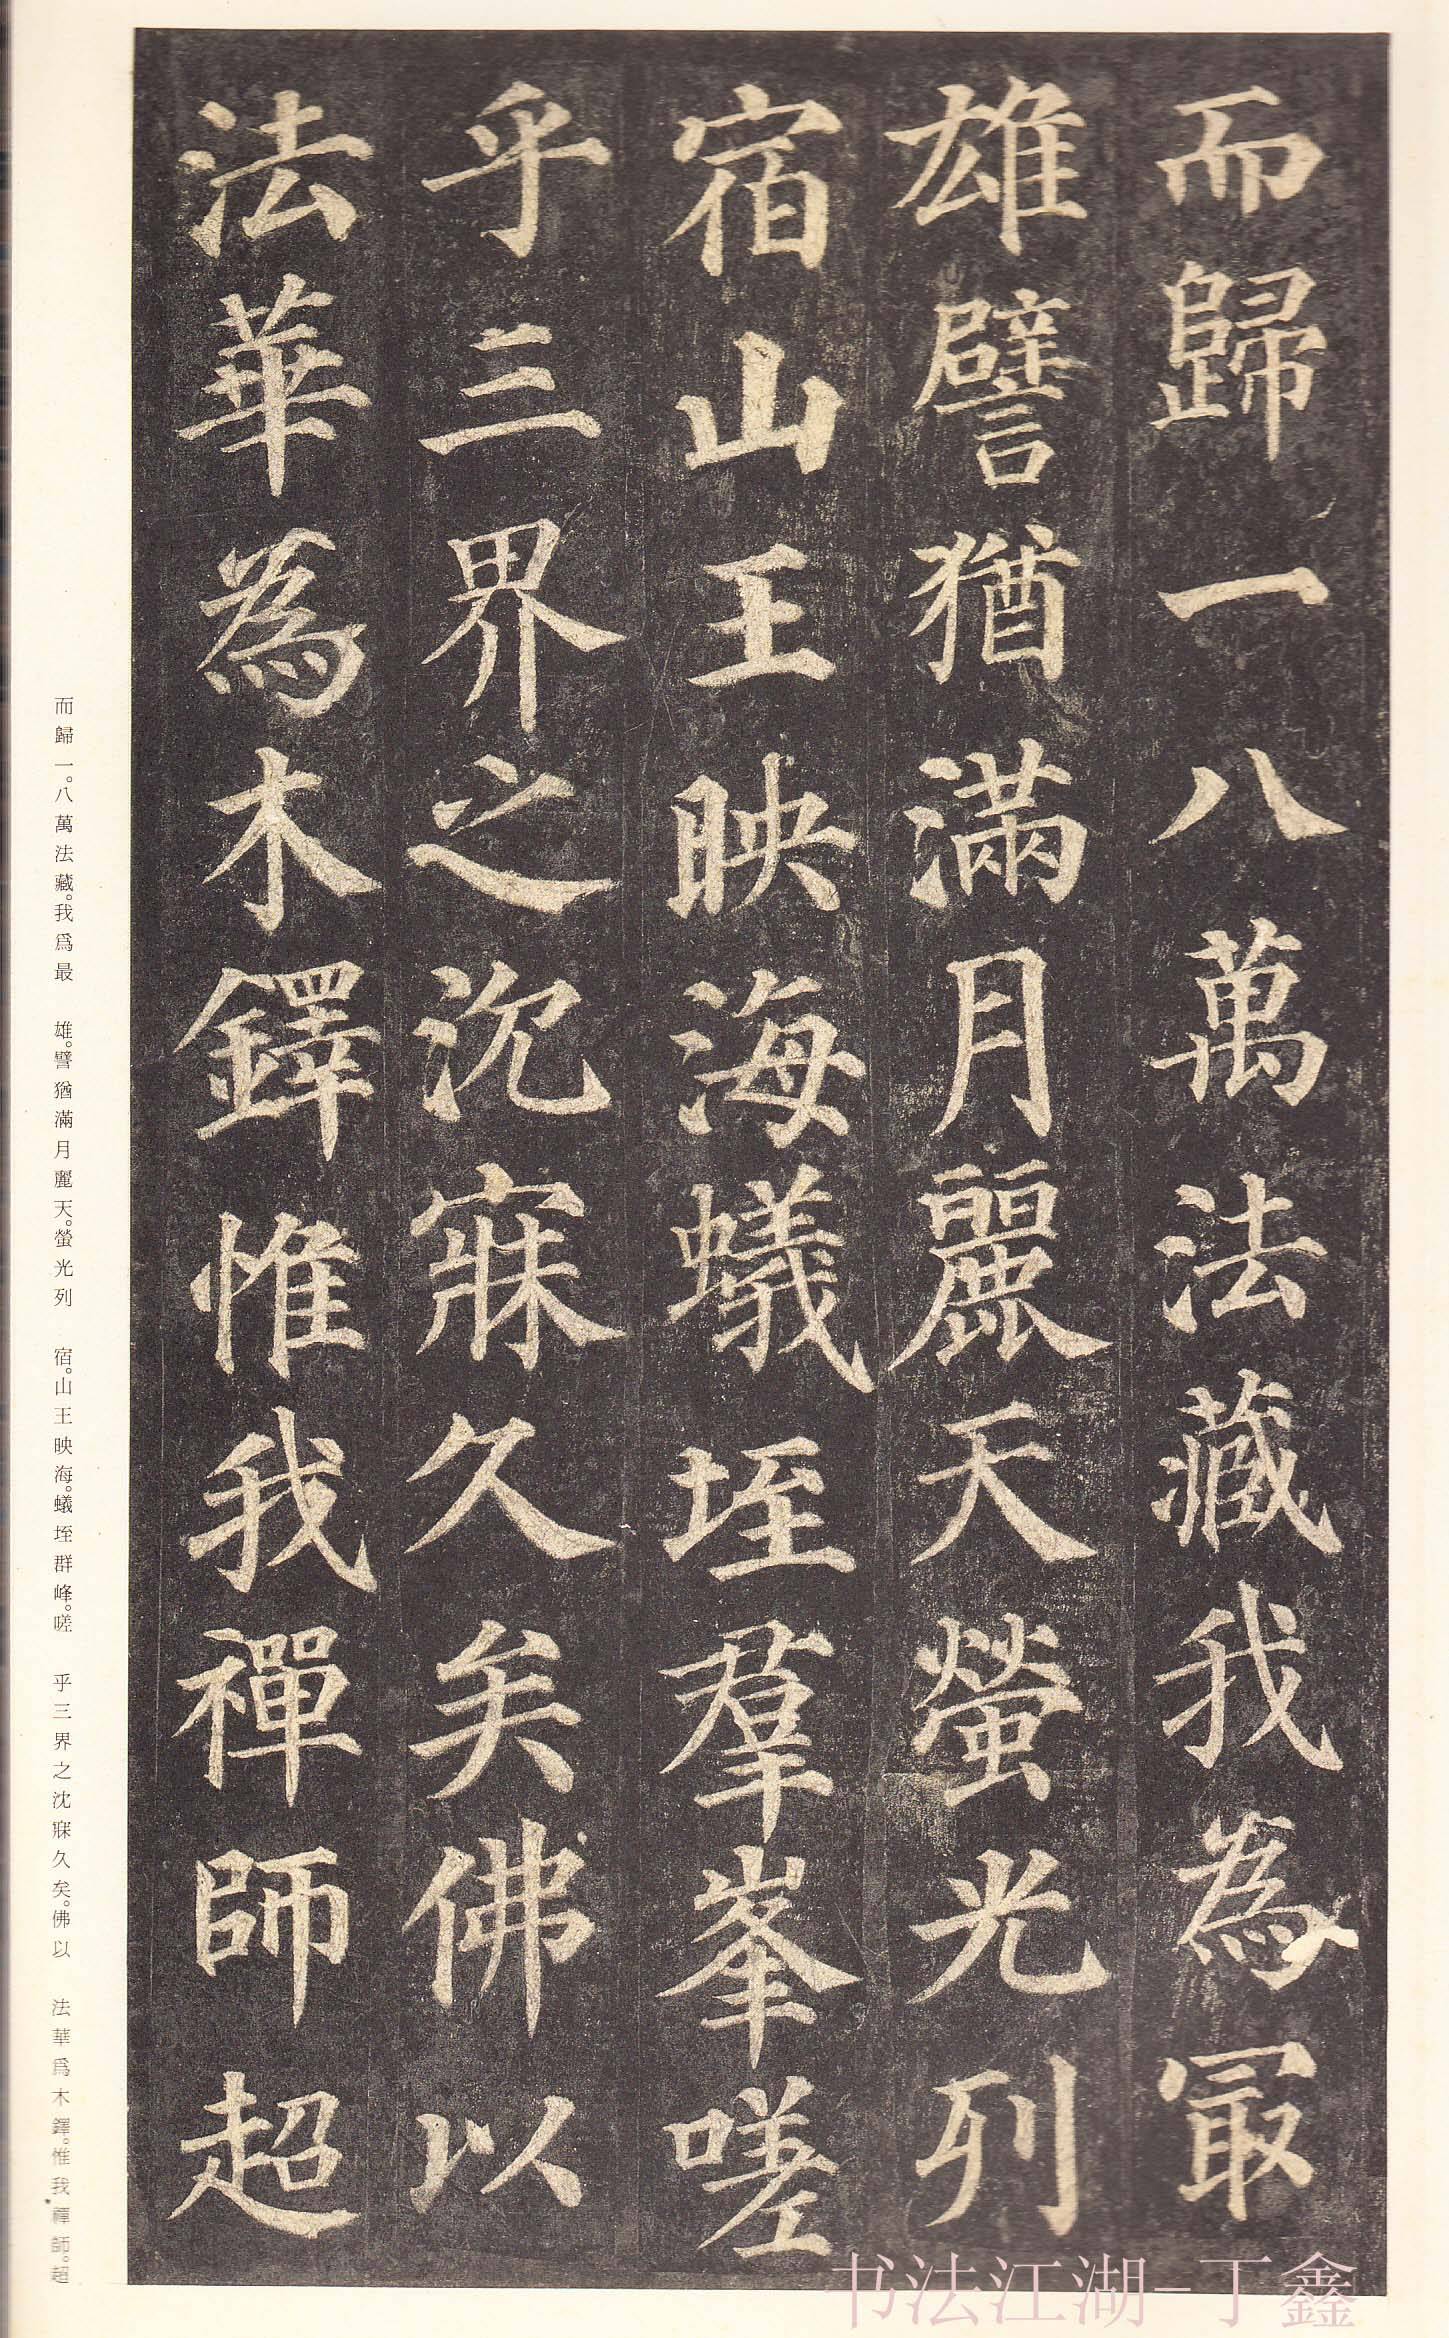 而歸一八萬法藏我為冣
雄譬猶滿月麗天螢光列
宿山王映海蟻垤羣峯嗟
乎三界之沉寐久矣佛以
法華為木鐸惟我禪師超
而歸一。八萬法藏。我爲最　雄。譬猶滿月麗天。螢光列　宿。山王映海。蟻垤群峰。嗟　乎三界之沈寐久矣。佛以　法華爲木鐸。惟我禪師。超
书法江湖-丁鑫